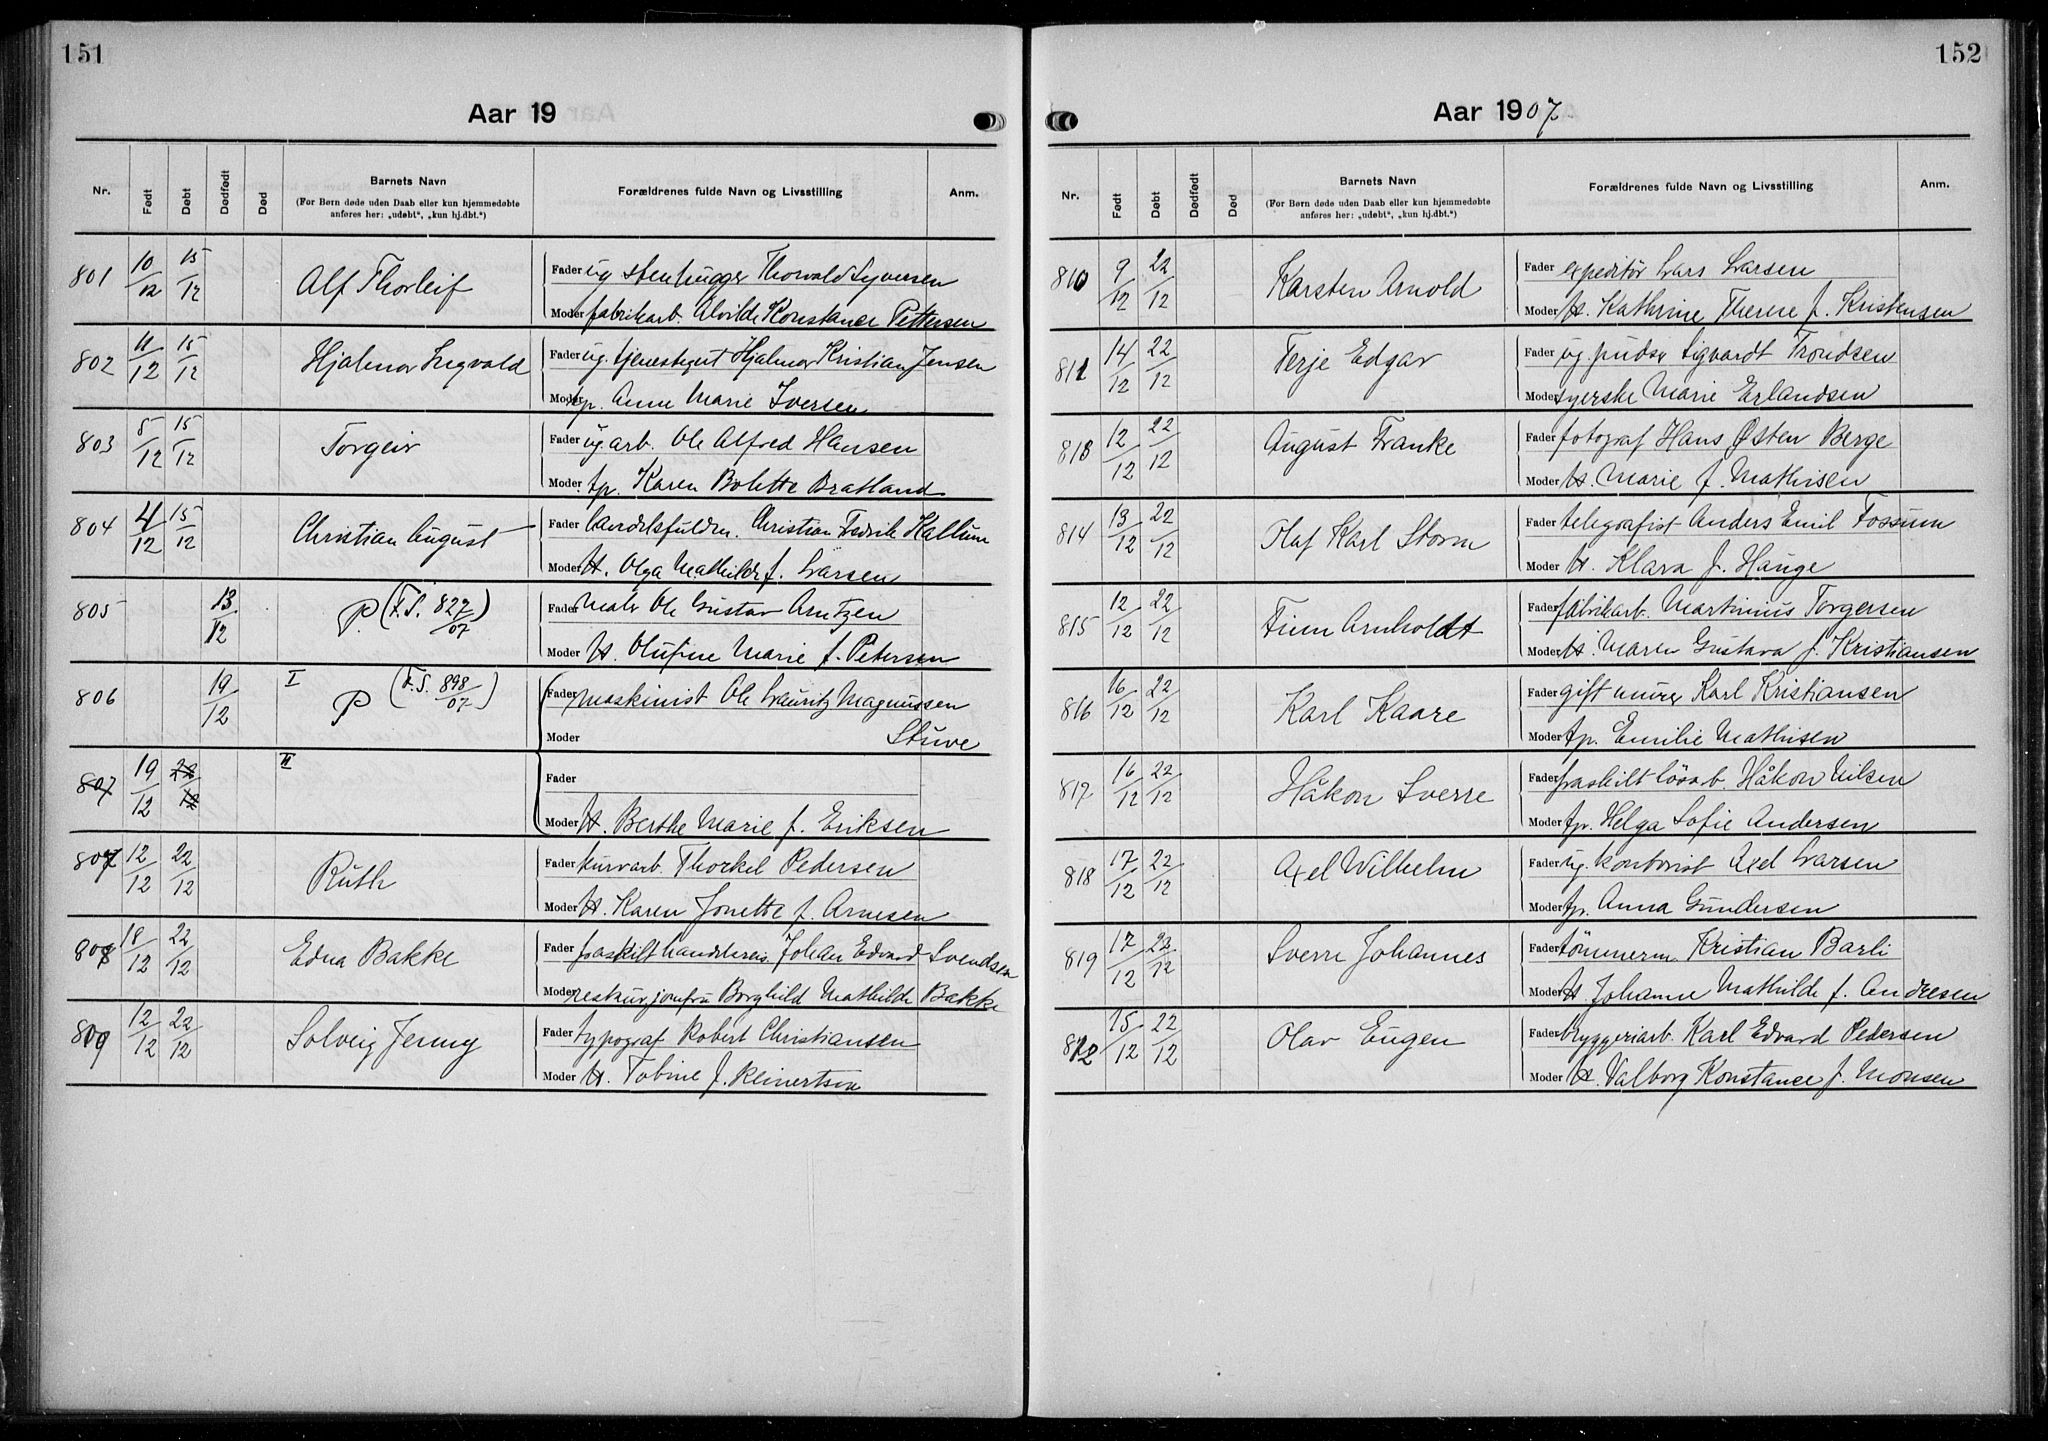 151
Aar 19
Nr. Født Døbt Dødfødt Død Barnets Navn Forældrenes fulde Navn og Livsstilling Anm.
(For Børn døde uden Daab eller kun hjemmedøbte
anføres her: „udøbt“, „kun hj.dbt.“)
801 10/12 15/12 Alf Thorleif Fader ug stenhugger Thorvald Syversen
Moder fabrikarb. Alvilde Konstance Pettersen
802 11/12 15/12 Hjalmar Sigvald Fader ug. tjenestegut Hjalmar Kristian Jensen
Moder tp. Anne Marie Iversen
803 5/12 15/12 Torgeir Fader ug arb. Ole Alfred Hansen
Moder tp. Karen Bolette Bratland
804 4/12 15/12 Christian August Fader handelsfuldm. Christian Fredrik Hallum
Moder H. Olga Mathilde f. Larsen
805 13/12 P (F.S. 827/07) Fader Maler Ole Gustav Arntzen
Moder H. Olufine Marie f. Petersen
806 19/12 I P (F.S. 898/07) Fader maskinist Ole Lauritz Magnussen
Moder Stuve
807 19/12 22/12 II Fader
Moder H. Berthe Marie f. Eriksen
807 12/12 22/12 Ruth Fader kurvarb. Thorkel Pedersen
Moder H. Karen Jonette f. Arnesen
808 18/12 22/12 Edna Bakke Fader fraskilt handelsreis. Johan Edvard Svendsen
Moder restaur.jomfru Borghild Mathilde Bakke
809 12/12 22/12 Solveig Jenny Fader typograf Robert Christiansen
Moder H. Tobine f. Reinertsen
152
Aar 1907
Nr. Født Døbt Dødfødt Død Barnets Navn Forældrenes fulde Navn og Livsstilling Anm.
(For Børn døde uden Daab eller kun hjemmedøbte
anføres her: „udøbt“, „kun hj.dbt.“)
810 9/12 22/12 Karsten Arnold Fader expeditør Lars Larsen
Moder H. Kathrine Therese f. Kristensen
811 14/12 22/12 Terje Edgar Fader ug. pudser Sigvardt Trondsen
Moder syerske Marie Erlandsen
813 12/12 22/12 August Franke Fader fotograf Hans Østen Berge
Moder H. Marie f. Mathisen
814 13/12 22/12 Olaf Karl Storm Fader telegrafist Anders Emil Fossum
Moder H. Klara f. Hauge
815 12/12 22/12 Finn Arnholdt Fader fabrikarb. Martinius Torgersen
Moder H. Maren Gustava f. Kristiansen
816 16/12 22/12 Karl Kaare Fader gift murer Karl Kristiansen
Moder tp. Emilie Mathisen
817 16/12 22/12 Håkon Sverre Fader fraskilt løsarb. Håkon Nilsen
Moder tp. Helga Sofie Andersen
818 17/12 22/12 Axel Wilhelm Fader ug. kontorist Axel Larsen
Moder tp. Anna Gundersen
819 17/12 22/12 Sverre Johannes Fader tømmerm. Kristian Barli
Moder H. Johanne Mathilde f. Andresen
812 15/12 22/12 Olav Eugen Fader bryggeriarb. Karl Edvard Pedersen
Moder H. Valborg Konstance f. Monsen